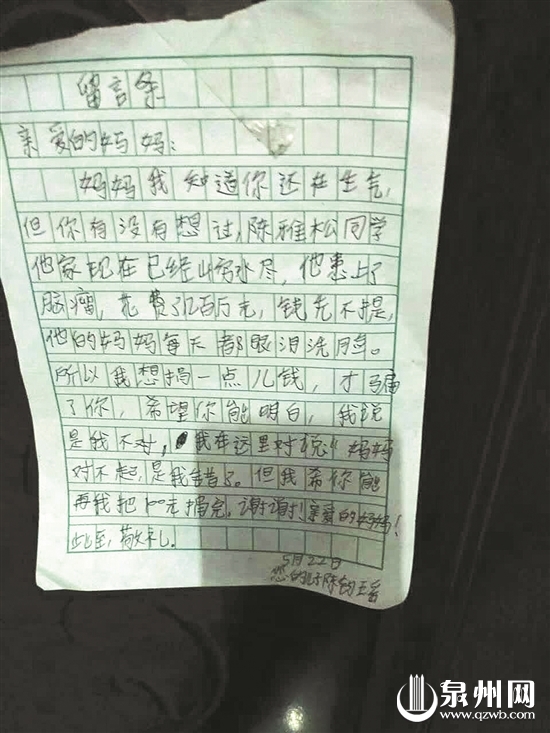 留言条
亲爱的妈妈:
妈妈我知道你还在生气,
但你有没有想过,陈雅松同学
他家现在已经山穷水尽,他患上了
脑瘤,花费了几百万元,钱先不提,
他的妈妈每天都眼泪洗脸。
所以我想捐一点儿钱,才骗
了你,希望你能明白,我说
是我不对,我在这里对说《妈妈
对不起,是我错了。但我希你能
再我把100元捐完,谢谢!亲爱的妈妈!
此至,敬礼。
5月22日
您的 陈
泉州网
www.qzwb.com